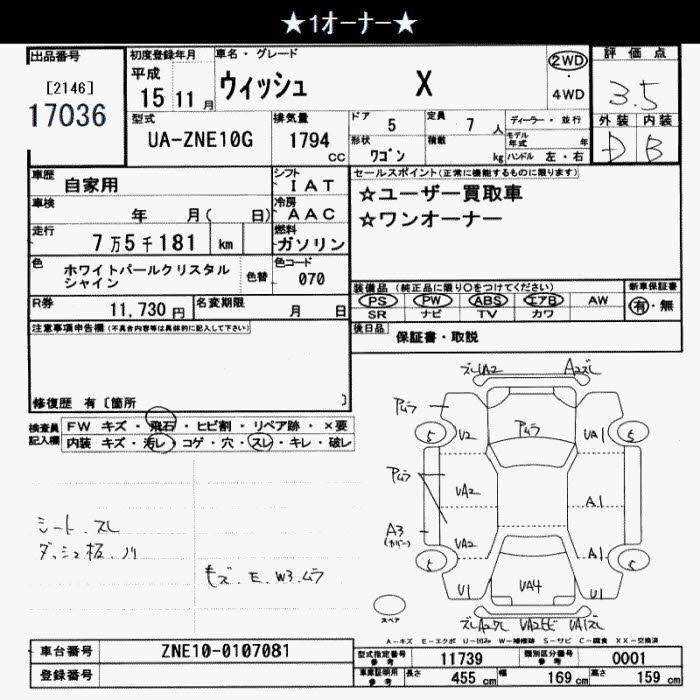 ★1オーナー★
出品番号 初度登録年月 車名・グレード 評価点
[2146] 平成 ウィッシュ X 2WD ・ 4WD 3.5
17036 15年 11月
型式 排気量 ドア 5 定員 7人 ディーラー・並行 外装 内装
UA-ZNE10G 1794 cc 形状 ワゴン 積載 kg モデル年式 年 D B
ハンドル 左・右
車歴 自家用 シフト IAT セールスポイント(正常に機能するものに限ります)
車検 年 月( 日) 冷房 AAC ☆ユーザー買取車
走行 7万5千181 km 燃料 ガソリン ☆ワンオーナー
色 ホワイトパールクリスタル 色替 色コード 070
シャイン
装備品 (純正品に限り○をつけてください) 新車保証書
R券 11,730円 名変期限 月 日 PS PW ABS エアB AW 有・無
SR ナビ TV カワ
注意事項申告欄(不具合内容等は具体的に記入して下さい) 後日品 保証書・取説
修復歴 有〔箇所 〕
検査員記入欄 FW キズ・飛石・ヒビ割・リペア跡・×要
内装 キズ・汚レ・コゲ・穴・スレ・キレ・破レ
ズレUA2 A2ズレ
Pムラ
5 U2 Pムラ UA1 5
Pムラ UA2 A1
A3 (カバー) UA2 A1
5 U1 UA4 U1 5
スペア
シート.スレ
ダッシュ板.ノリ
キズ.E.W3.ムラ
A-キズ E-エクボ U-凹み W-補修跡 S-サビ C-腐食 XX-交換済
車台番号 ZNE10-0107081 型式指定番号 参考 11739 類別区分番号 参考 0001
登録番号 車庫証明用 参考 長さ 455 cm 幅 169 cm 高さ 159 cm